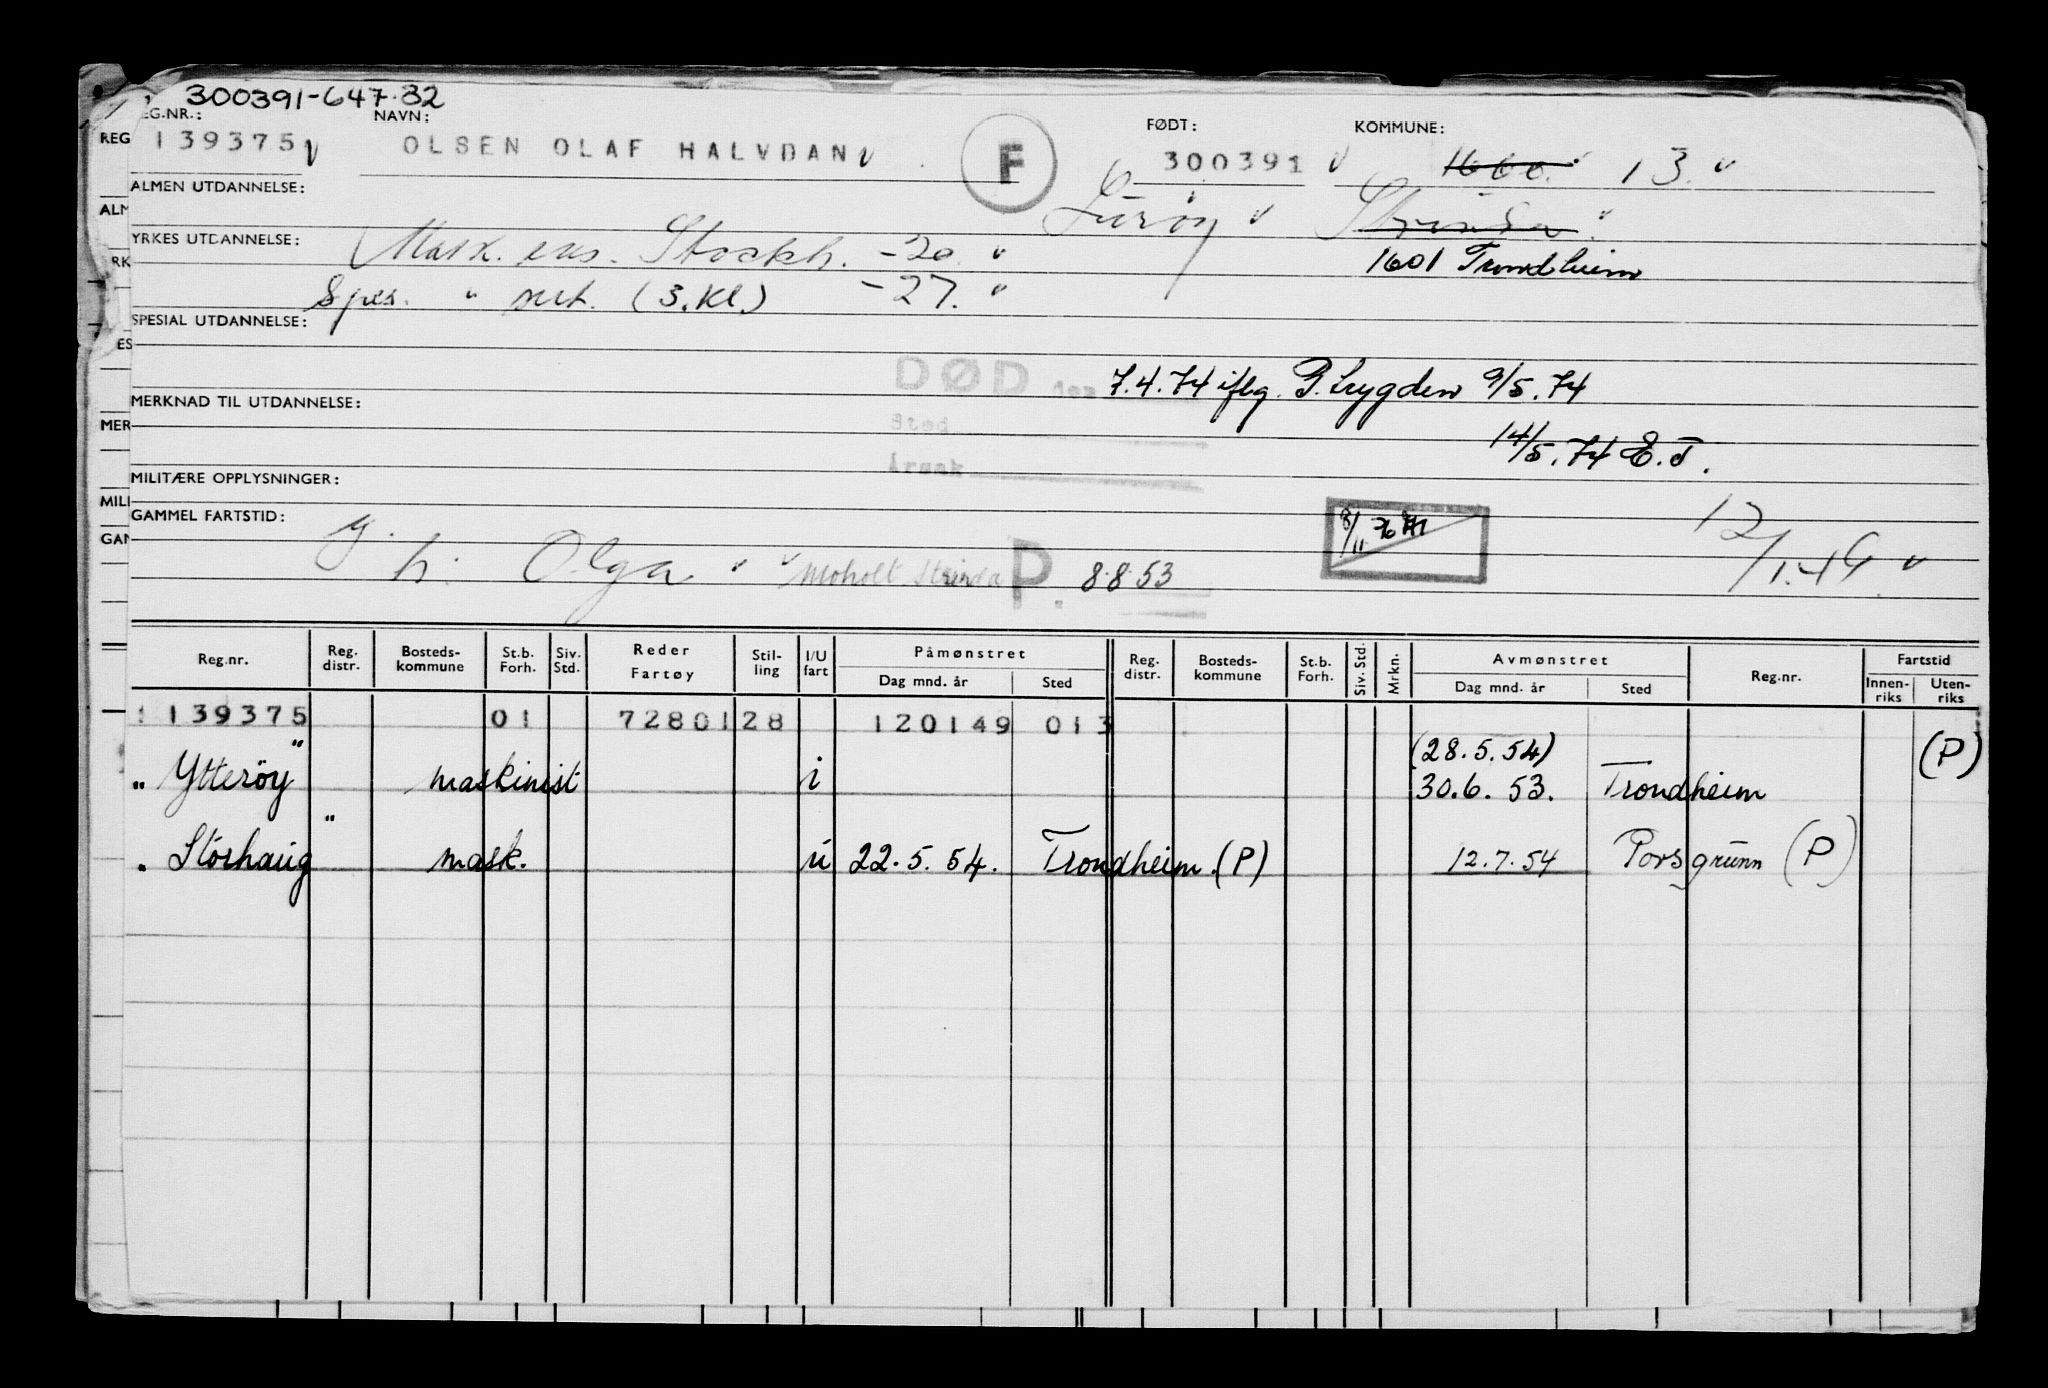 300391-647.32
REG.NR.: NAVN: FØDT: KOMMUNE:
139375 OLSEN OLAF HALVDAN F 300391 1660. 13.
ALMEN UTDANNELSE:
Lurøy Strinda
YRKES UTDANNELSE: Mask. eks. Stockh. -20. 1601 Trondheim
Spes. " sert. (3.kl.) -27.
SPESIAL UTDANNELSE:
DØD den 7.4.74 iflg. P. Trygden 9/5.74
MERKNAD TIL UTDANNELSE:
Sted
14/5.74 E.T.
Årsak
MILITÆRE OPPLYSNINGER:
GAMMEL FARTSTID:
8/11 76
12/1.49
g. h. Olga Moholt Strinda P. 8.8.53
Reg.nr. Reg. distr. Bosteds-kommune St.b. Forh. Siv. Std. Reder Fartøy Stil-ling I/U fart Påmønstret Dag mnd. år Sted Reg. distr. Bosteds-kommune St.b. Forh. Siv. Std. Mrkn. Avmønstret Dag mnd. år Sted Reg.nr. Fartstid Innen-riks Uten-riks
139375 01 7280128 120149 013
(28.5.54) (P)
"Ytterøy" maskinist i 30.6.53. Trondheim
"Storhaug" mask. u 22.5.54. Trondheim.(P) 12.7.54 Porsgrunn (P)